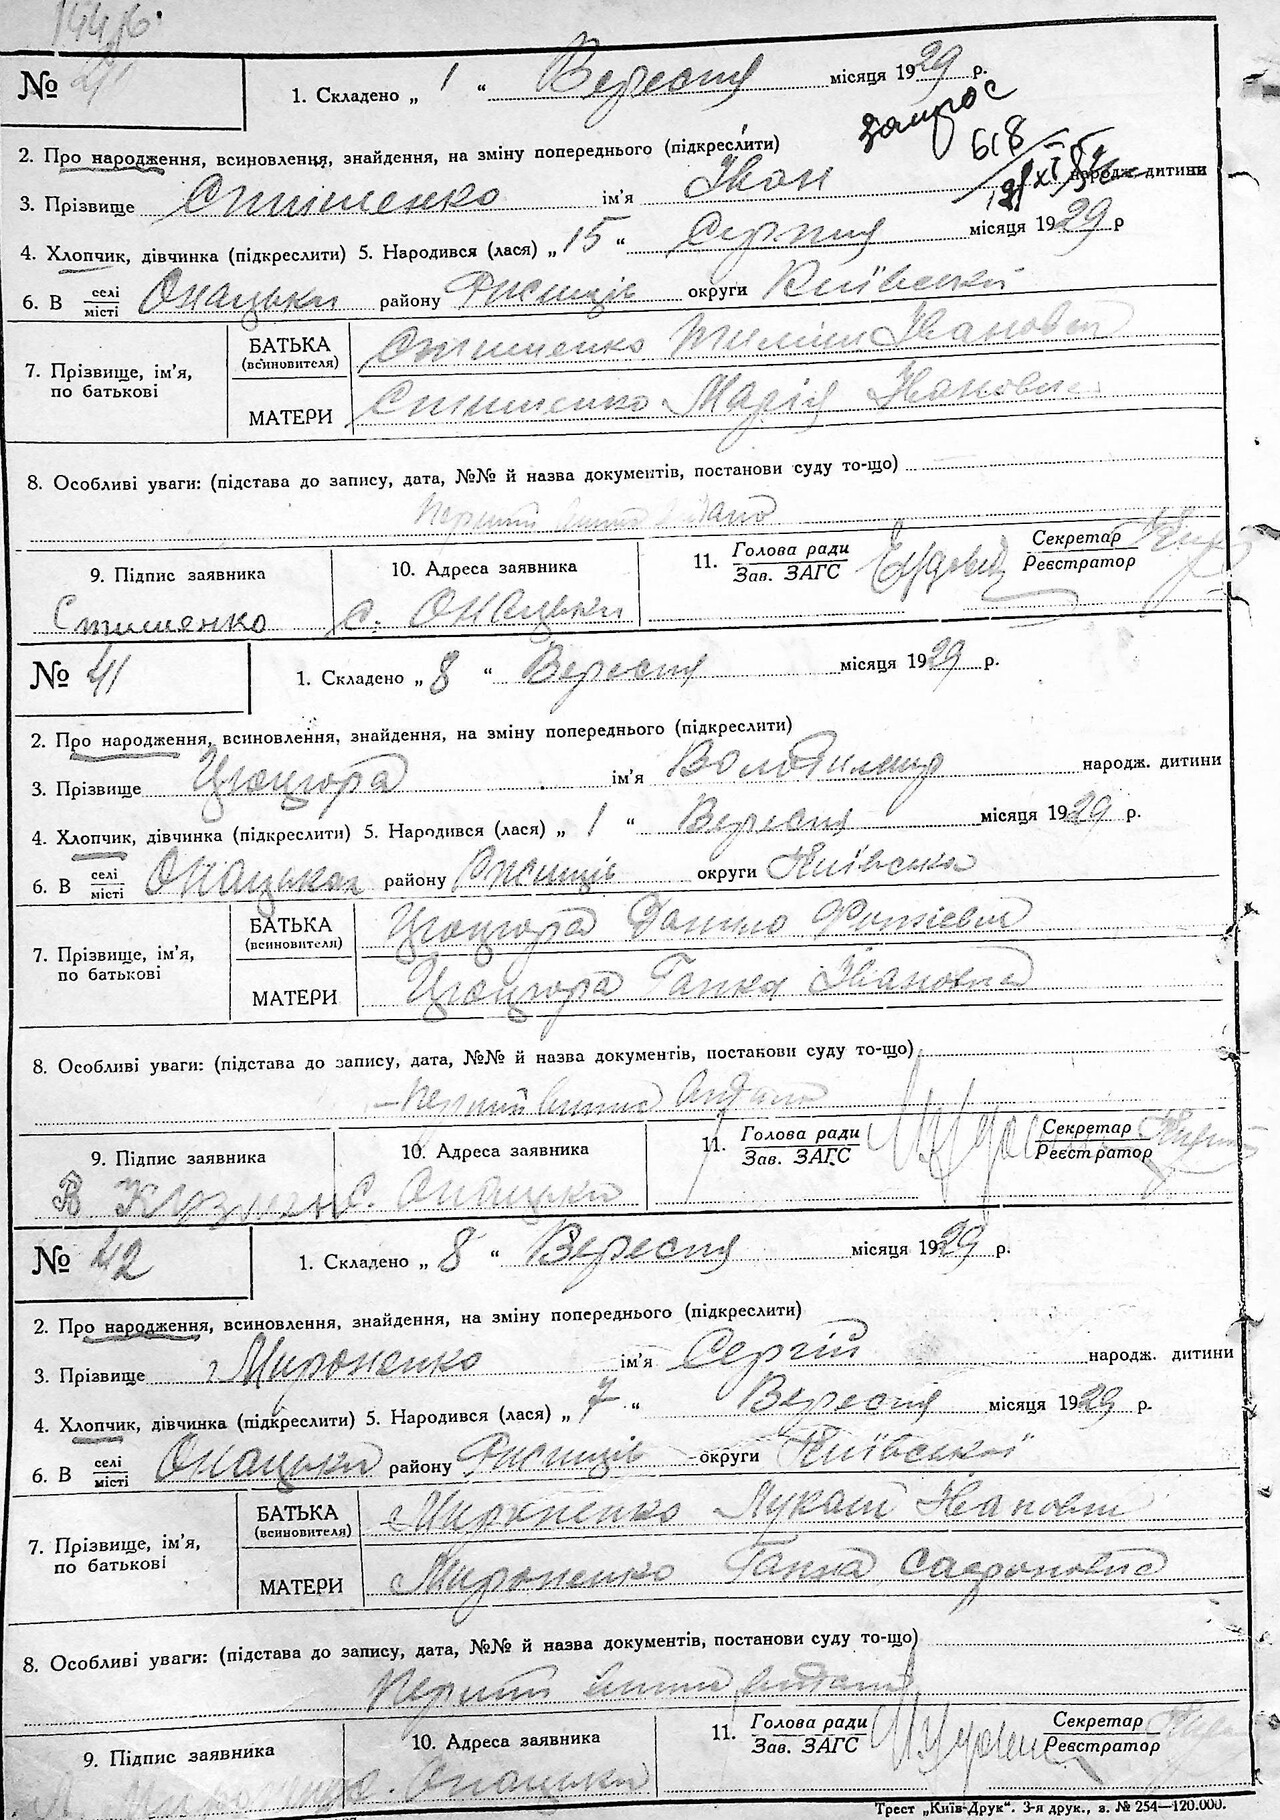 144 б.
№
1. Складено „ 1 “ Вересня місяця 1929 р.
запрос
618
2. Про народження, всиновлення, знайдення, на зміну попереднього (підкреслити)
3. Прізвище Стишенко ім'я Іван народж. дитини
4. Хлопчик, дівчинка (підкреслити) 5. Народився (лася) „ 15 “ Серпня місяця 1929 р
6. В селі місті Опацьки району округи Київської
7. Прізвище, ім'я, по батькові
БАТЬКА (всиновителя) Стишенко Іванович
МАТЕРИ Стишенко Марія Івановна
8. Особливі уваги: (підстава до запису, дата, №№ й назва документів, постанови суду то-що)
Перший видано
9. Підпис заявника
10. Адреса заявника
11. Голова ради Зав. ЗАГС
Секретар Реєстратор
Стишенко
с. Опацьки
№ 41
1. Складено „ 8 “ Вересня місяця 1929 р.
2. Про народження, всиновлення, знайдення, на зміну попереднього (підкреслити)
3. Прізвище Цюцюра ім'я Володимир народж. дитини
4. Хлопчик, дівчинка (підкреслити) 5. Народився (лася) „ 1 “ Вересня місяця 1929 р.
6. В селі місті району округи Київська
7. Прізвище, ім'я, по батькові
БАТЬКА (всиновителя) Цюцюра Данило
МАТЕРИ Цюцюра Гапка Івановна
8. Особливі уваги: (підстава до запису, дата, №№ й назва документів, постанови суду то-що)
Перший видано
9. Підпис заявника
10. Адреса заявника
11. Голова ради Зав. ЗАГС
Секретар Реєстратор
с. Опацьки
№ 42
1. Складено „ 8 “ Вересня місяця 1929 р.
2. Про народження, всиновлення, знайдення, на зміну попереднього (підкреслити)
3. Прізвище Мироненко ім'я Сергій народж. дитини
4. Хлопчик, дівчинка (підкреслити) 5. Народився (лася) „ 7 “ Вересня місяця 1929 р.
6. В селі місті Опацьки району округи Київської
7. Прізвище, ім'я, по батькові
БАТЬКА (всиновителя) Мироненко Лукаш Іванович
МАТЕРИ Мироненко Ганна Сафроновна
8. Особливі уваги: (підстава до запису, дата, №№ й назва документів, постанови суду то-що)
Перший видано
9. Підпис заявника
10. Адреса заявника
11. Голова ради Зав. ЗАГС
Секретар Реєстратор
с. Опацьки
Трест „Київ-Друк“. 3-я друк., з. № 254—120.000.